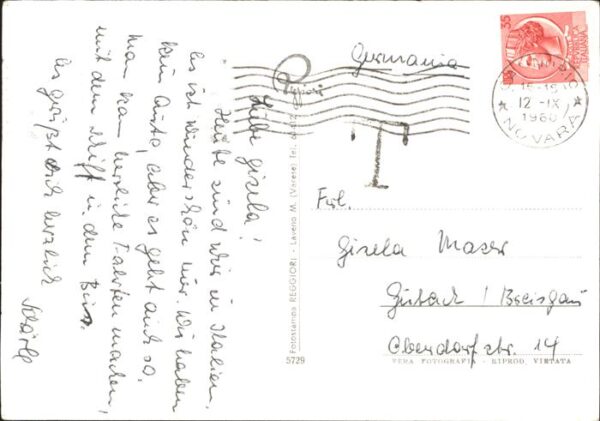 Liebe Gisela!
Heute sind wir in Italien.
Es ist wunderschön hier. Wir haben
kein Auto, aber es geht auch so.
Man kann herrliche Fahrten machen,
mit dem Schiff u. dem Bus.
Es grüßt Dich herzlich
Germania
T
35
15-18
12 -IX
1960
NOVARA
Frl.
Gisela Maser
Gutach / Breisgau
Oberdorfstr. 14
Fotostampa REGGIORI - Laveno M. (Varese) Tel.
5729
VERA FOTOGRAFIA - RIPROD. VIETATA